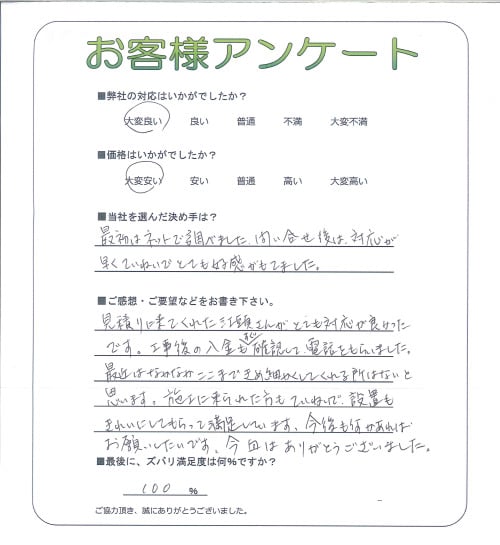 お客様アンケート
■弊社の対応はいかがでしたか？
大変良い 良い 普通 不満 大変不満
■価格はいかがでしたか？
大変安い 安い 普通 高い 大変高い
■当社を選んだ決め手は？
最初はネットで調べました。問い合せ後は、対応が
早くていねいでとても好感がもてました。
■ご感想・ご要望などをお書き下さい。
見積りに来てくれた江頭さんがとても対応が良かった
です。工事後の入金もすぐ確認して電話をもらいました。
最近はなかなかここまできめ細かくしてくれる所はないと
思います。施工に来られた方もていねいで、設置も
きれいにしてもらって満足しています。今後も何かあれば
お願いしたいです。今回はありがとうございました。
■最後に、ズバリ満足度は何％ですか？
100 ％
ご協力頂き、誠にありがとうございました。